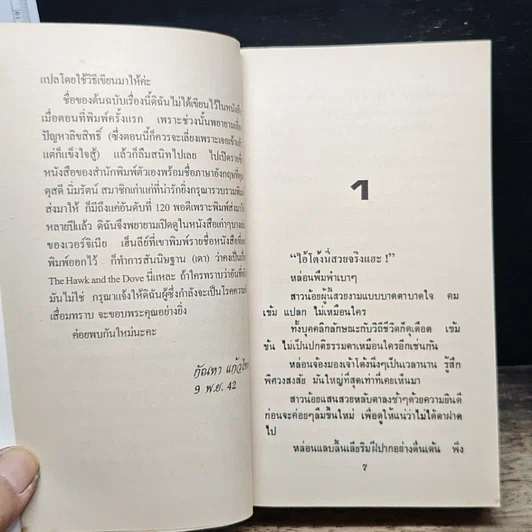 แปลโดยใช้วิธีเขียนมาให้ค่ะ
ชื่อของต้นฉบับเรื่องนี้ดิฉันไม่ได้เขียนไว้ในหนังสือ
เมื่อตอนที่พิมพ์ครั้งแรก เพราะช่วงนั้นพยายามเลี่ยง
ปัญหาลิขสิทธิ์ (ซึ่งตอนนี้ก็ควรจะเลี่ยงเพราะเจอเข้าแล้ว
แต่ก็แข็งใจสู้) แล้วก็ลืมสนิทไปเลย ไปเปิดราย
หนังสือของสำนักพิมพ์ตัวเองพร้อมชื่อภาษาอังกฤษที่คุณ
ดุสดี นิมรัตน์ สมาชิกเก่าแก่ที่น่ารักยิ่งกรุณารวบรวมพิมพ์
ส่งมาให้ ก็มีถึงแค่อันดับที่ 120 พอดีเพราะพิมพ์ส่งมาให้
หลายปีแล้ว ดิฉันจึงพยายามเปิดดูในหนังสือเก่าๆบาง
ของเวอร์จิเนีย เฮ็นลีย์ที่เขาพิมพ์รายชื่อหนังสือที่
พิมพ์ออกไว้ ก็ทำการสันนิษฐาน (เดา) ว่าคงเป็น
The Hawk and the Dove นี่แหละ ถ้าใครทราบว่าอันที่
มันไม่ใช่ กรุณาแจ้งให้ดิฉันผู้ซึ่งกำลังจะเป็นโรคความ
เสื่อมทราบ จะขอบพระคุณอย่างยิ่ง
ค่อยพบกันใหม่นะคะ
กัณหา แก้วไทย
9 พ.ย. 42
1
“ไอ้โต้งนี่สวยจริงแฮะ !”
หล่อนพึมพำเบาๆ
สาวน้อยผู้นี้สวยงามแบบบาดตาบาดใจ คม
เข้ม แปลก ไม่เหมือนใคร
ทั้งบุคคลิกลักษณะกับวิถีชีวิตก็ดุเดือด เข้ม
ข้น ไม่เป็นปกติธรรมดาเหมือนใครอีกเช่นกัน
หล่อนจ้องมองเจ้าโต้งนิ่งๆเป็นเวลานาน รู้สึก
พิศวงสงสัย มันใหญ่ที่สุดเท่าที่เคยเห็นมา
สาวน้อยแสนสวยหลับตาลงช้าๆด้วยความยินดี
ก่อนจะค่อยๆลืมขึ้นใหม่ เพื่อดูให้แน่ว่าไม่ได้ตาฝาด
ไป
หล่อนแลบลิ้นเลียริมฝีปากอย่างตื่นเต้น พึง
7